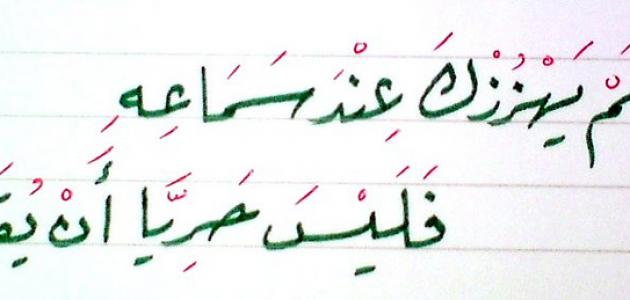 مْ يَهْزُزْكَ عِنْدَ سَمَاعِهِ
فَلَيْسَ حَرِيًّا أَنْ يُقَ